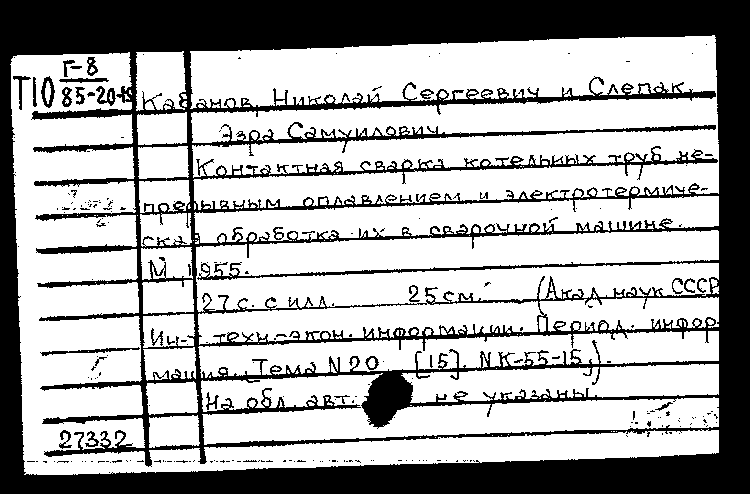 Г-8
Т10 85-20-19
Кабанов, Николай Сергеевич и Слепак,
Эзра Самуилович.
Контактная сварка котельных труб не-
прерывным оплавлением и электротермиче-
ская обработка их в сварочной машине.
М., 1955.
27 с. с илл. 25 см. (Акад. наук СССР
Ин-т техн.-экон. информации. Период. инфор-
мация. Тема N20 [15]. NК-55-15.).
На обл. авт. не указаны.
27332